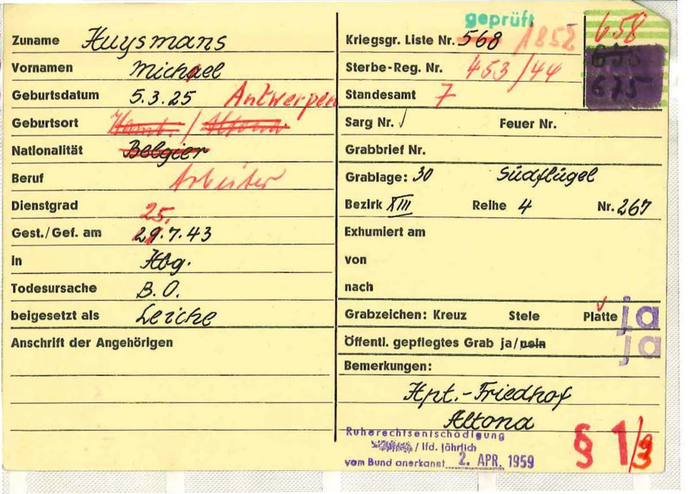 geprüft
Zuname Huysmans
Vornamen Michael
Geburtsdatum 5.3.25 Antwerpen
Geburtsort Hamb. / Altona
Nationalität Belgier
Beruf Arbeiter
Dienstgrad
25.
Gest./Gef. am 29.7.43
in Hbg.
Todesursache B.O.
beigesetzt als Leiche
Anschrift der Angehörigen
Kriegsgr. Liste Nr. 568 1852
658
675
Sterbe-Reg. Nr. 453/44
Standesamt 7
Sarg Nr. / Feuer Nr.
Grabbrief Nr.
Grablage: 30 Südflügel
Bezirk XIII Reihe 4 Nr. 267
Exhumiert am
von
nach
Grabzeichen: Kreuz Stele Platte ja
Öffentl. gepflegtes Grab ja/nein ja
Bemerkungen:
Hpt.-Friedhof
Altona
Ruherechtsentschädigung
/ lfd. jährlich
vom Bund anerkannt 2. APR. 1959
§ 1/3